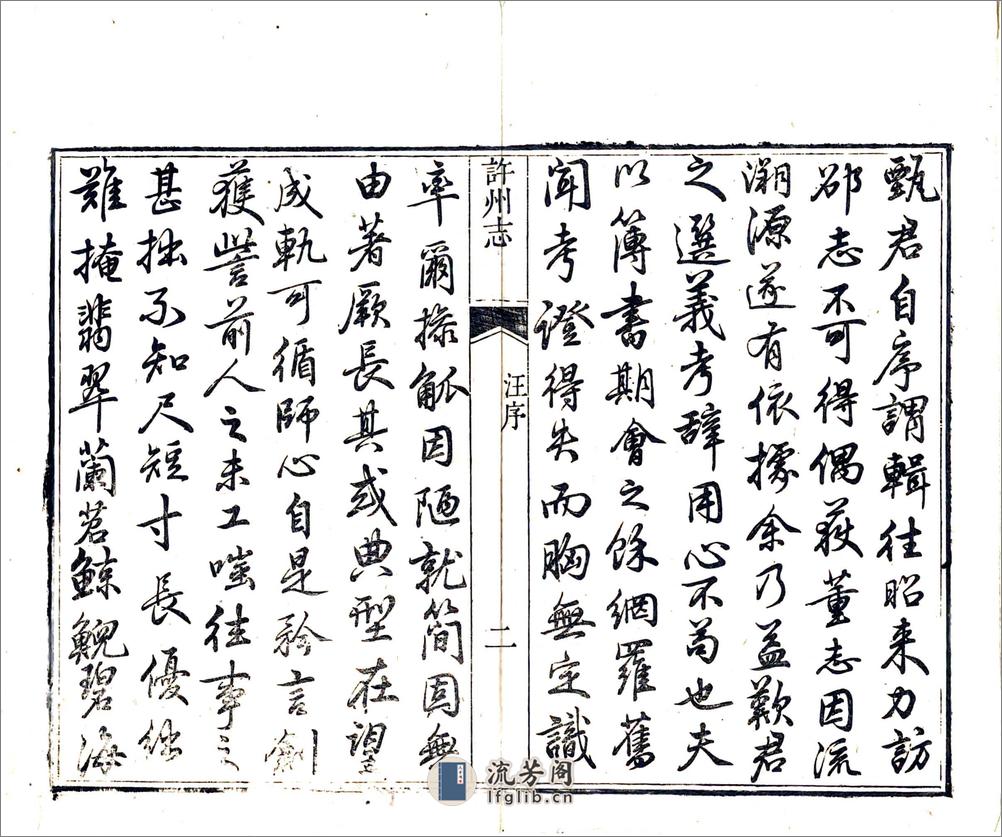 甄君自序謂輯往昭来力訪
邵志不可得偶获董志因流
溯源遂有依據余乃益歎君
之選義考辭用心不苟也夫
以簿書期會之餘網羅舊
聞考證得失而胸無定識
許州志
汪序
二
率爾操觚因陋就簡固無
由著厥長其或典型在望
成軌可循師心自是矜言創
獲訾前人之未工嗤往事之
甚拙不知尺短寸長優絀
難掩翡翠蘭苕鯨鯢碧海
流芳阁
lfglib.cn